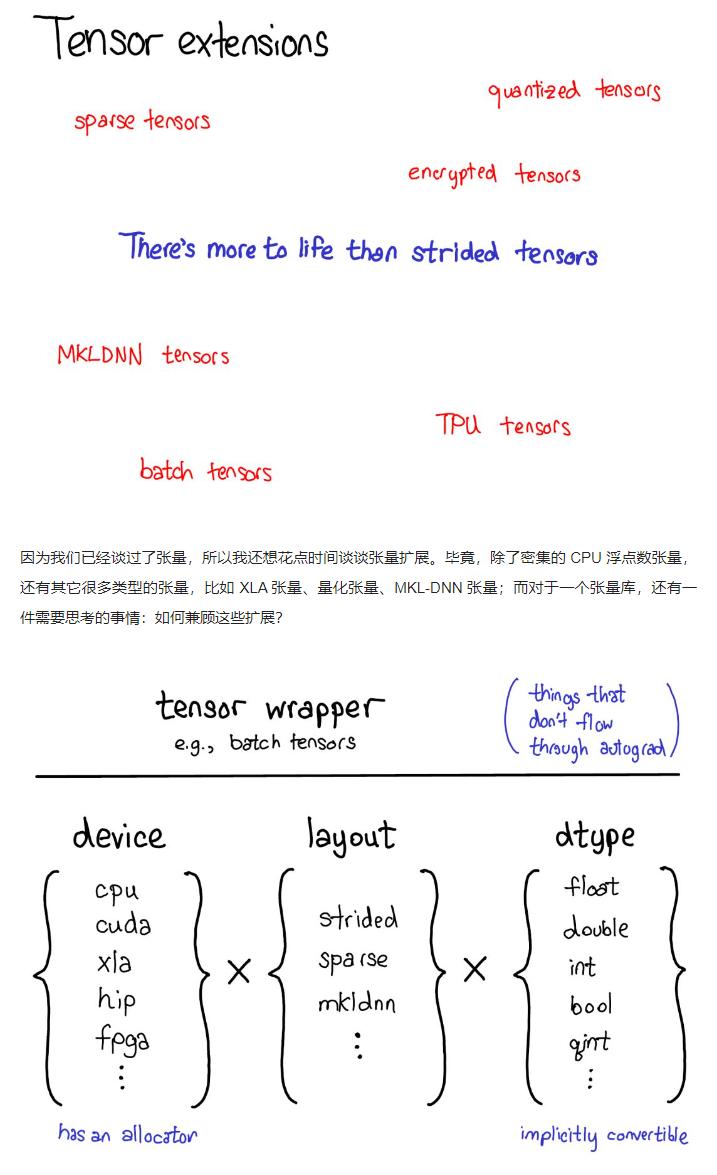 Tensor extensions
quantized tensors
sparse tensors
encrypted tensors
There's more to life than strided tensors
MKLDNN tensors
TPU tensors
batch tensors
因为我们已经谈过了张量，所以我还想花点时间谈谈张量扩展。毕竟，除了密集的 CPU 浮点数张量，
还有其它很多类型的张量，比如 XLA 张量、量化张量、MKL-DNN 张量；而对于一个张量库，还有一
件需要思考的事情：如何兼顾这些扩展？
tensor wrapper
e.g., batch tensors
(things that
don't flow
through autograd)
device
{cpu
cuda
xla
hip
fpga
⋮}
×
layout
{strided
sparse
mkldnn
⋮}
×
dtype
{float
double
int
bool
qint
⋮}
has an allocator
implicitly convertible